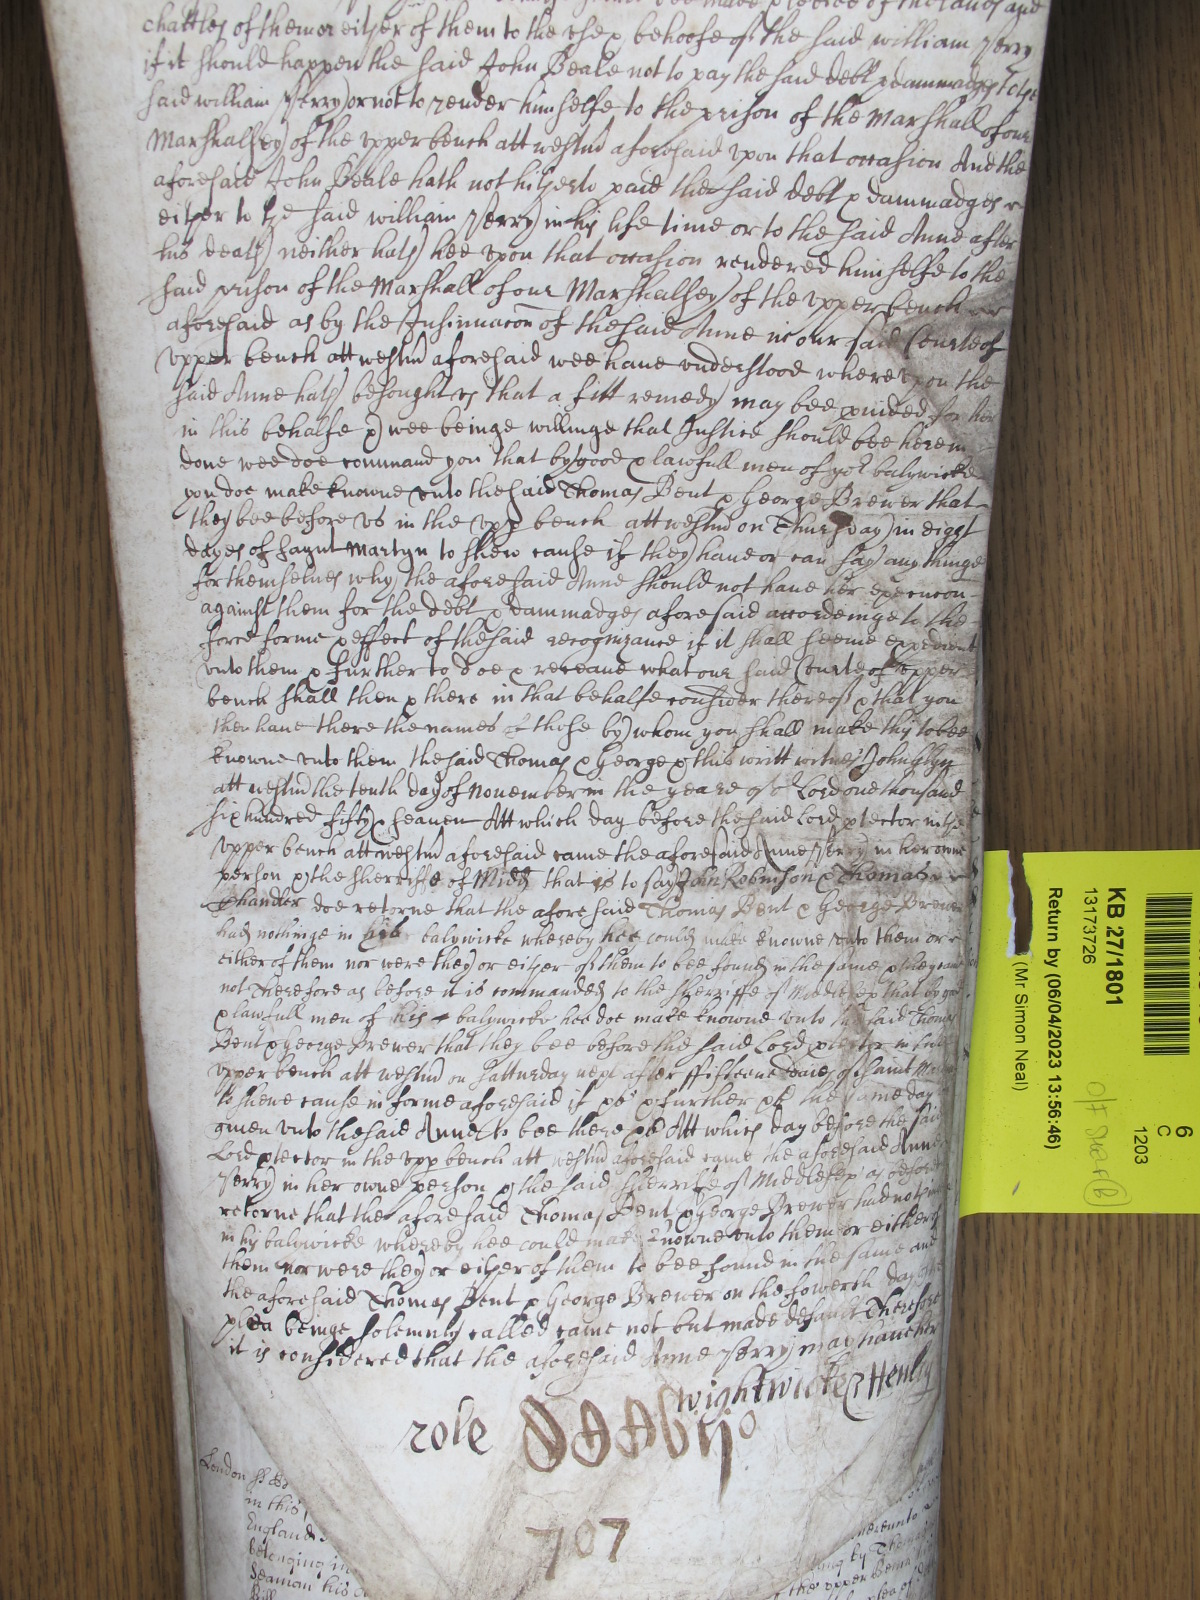 chattles of them or either of them to the use & behoofe of the said william Perry
if it should happen the said John Beale not to pay the said debt & dammadges to the
said william Perry or not to render himselfe to the prison of the Marshall of our
Marshalsey of the upper bench att westm aforesaid upon that occasion And the
aforesaid John Beale hath not hitherto paid the said debt & dammadges
either to the said william Perry in his life time or to the said Anne after
his death neither hath hee upon that occasion rendered himselfe to the
said prison of the Marshall of our Marshalsey of the upper bench
aforesaid as by the Insinuacon of the said Anne in our said Courte of
upper bench att westm aforesaid wee have understood whereupon the
said Anne hath besought us that a fitt remedy may bee pvided for her
in this behalfe & wee beinge willinge that Justice should bee herein
done wee doe command you that by good & lawfull men of yor baliwicke
you doe make knowne unto the said Thomas Bent & George Brewer that
they bee before us in the upp bench att westm on Thursday in eight
dayes of saynt Martyn to shew cause if they have or can say any thinge
for themselves why the aforesaid Anne should not have her execucon
against them for the debt & dammadges aforesaid accordeinge to the
force forme & effect of the said recognizance if it shall seeme expedient
unto them & further to doe & receave what our said Courte of upper
bench shall then & there in that behalfe consider thereof & that you
then have there the names of those by whom you shall make this to bee
knowne unto them the said Thomas & George & this writt witnes John Glyn
att westm the tenth day of November in the yeare of or Lord one thousand
six hundred fifty & seaven Att which day before the said Lord ptector in the
upper bench att westm aforesaid came the aforesaid Anne Perry in her owne
person & the sherriffe of Midd that is to say John Robinson & Thomas
Chandler doe retorne that the aforesaid Thomas Bent & George Brewer
had nothinge in his baliwicke whereby hee could make knowne unto them or
either of them nor were they or either of them to bee found in the same & they came
not Therefore as before it is commanded to the sherriffe of Middlesex that by good
& lawfull men of his baliwicke hee doe make knowne unto the said Thomas
Bent & George Brewer that they bee before the said Lord ptector in the
upper bench att westm on Satturday next after ffifteene daies of Saint Martyn
to shewe cause in forme aforesaid if &c & further &c the same day
given unto the said Anne to bee there &c Att which day before the said
Lord ptector in the upp bench att westm aforesaid came the aforesaid Anne
Perry in her owne person & the said sherriffe of Middlesex as before
retorne that the aforesaid Thomas Bent & George Brewer had nothinge
in his baliwicke whereby hee could make knowne unto them or either of
them nor were they or either of them to bee found in the same and
the aforesaid Thomas Bent & George Brewer on the fowerth day of the
plea beinge solemnly called came not but made default Therefore
it is considered that the aforesaid Anne Perry may have her
Wightwicke & Henly
role
707
London ss
in this
England
belonging in
Seaman his
Bill
KB 27/1801
13173726
Return by (06/04/2023 13:56:46)
(Mr Simon Neal)
6
C
1203